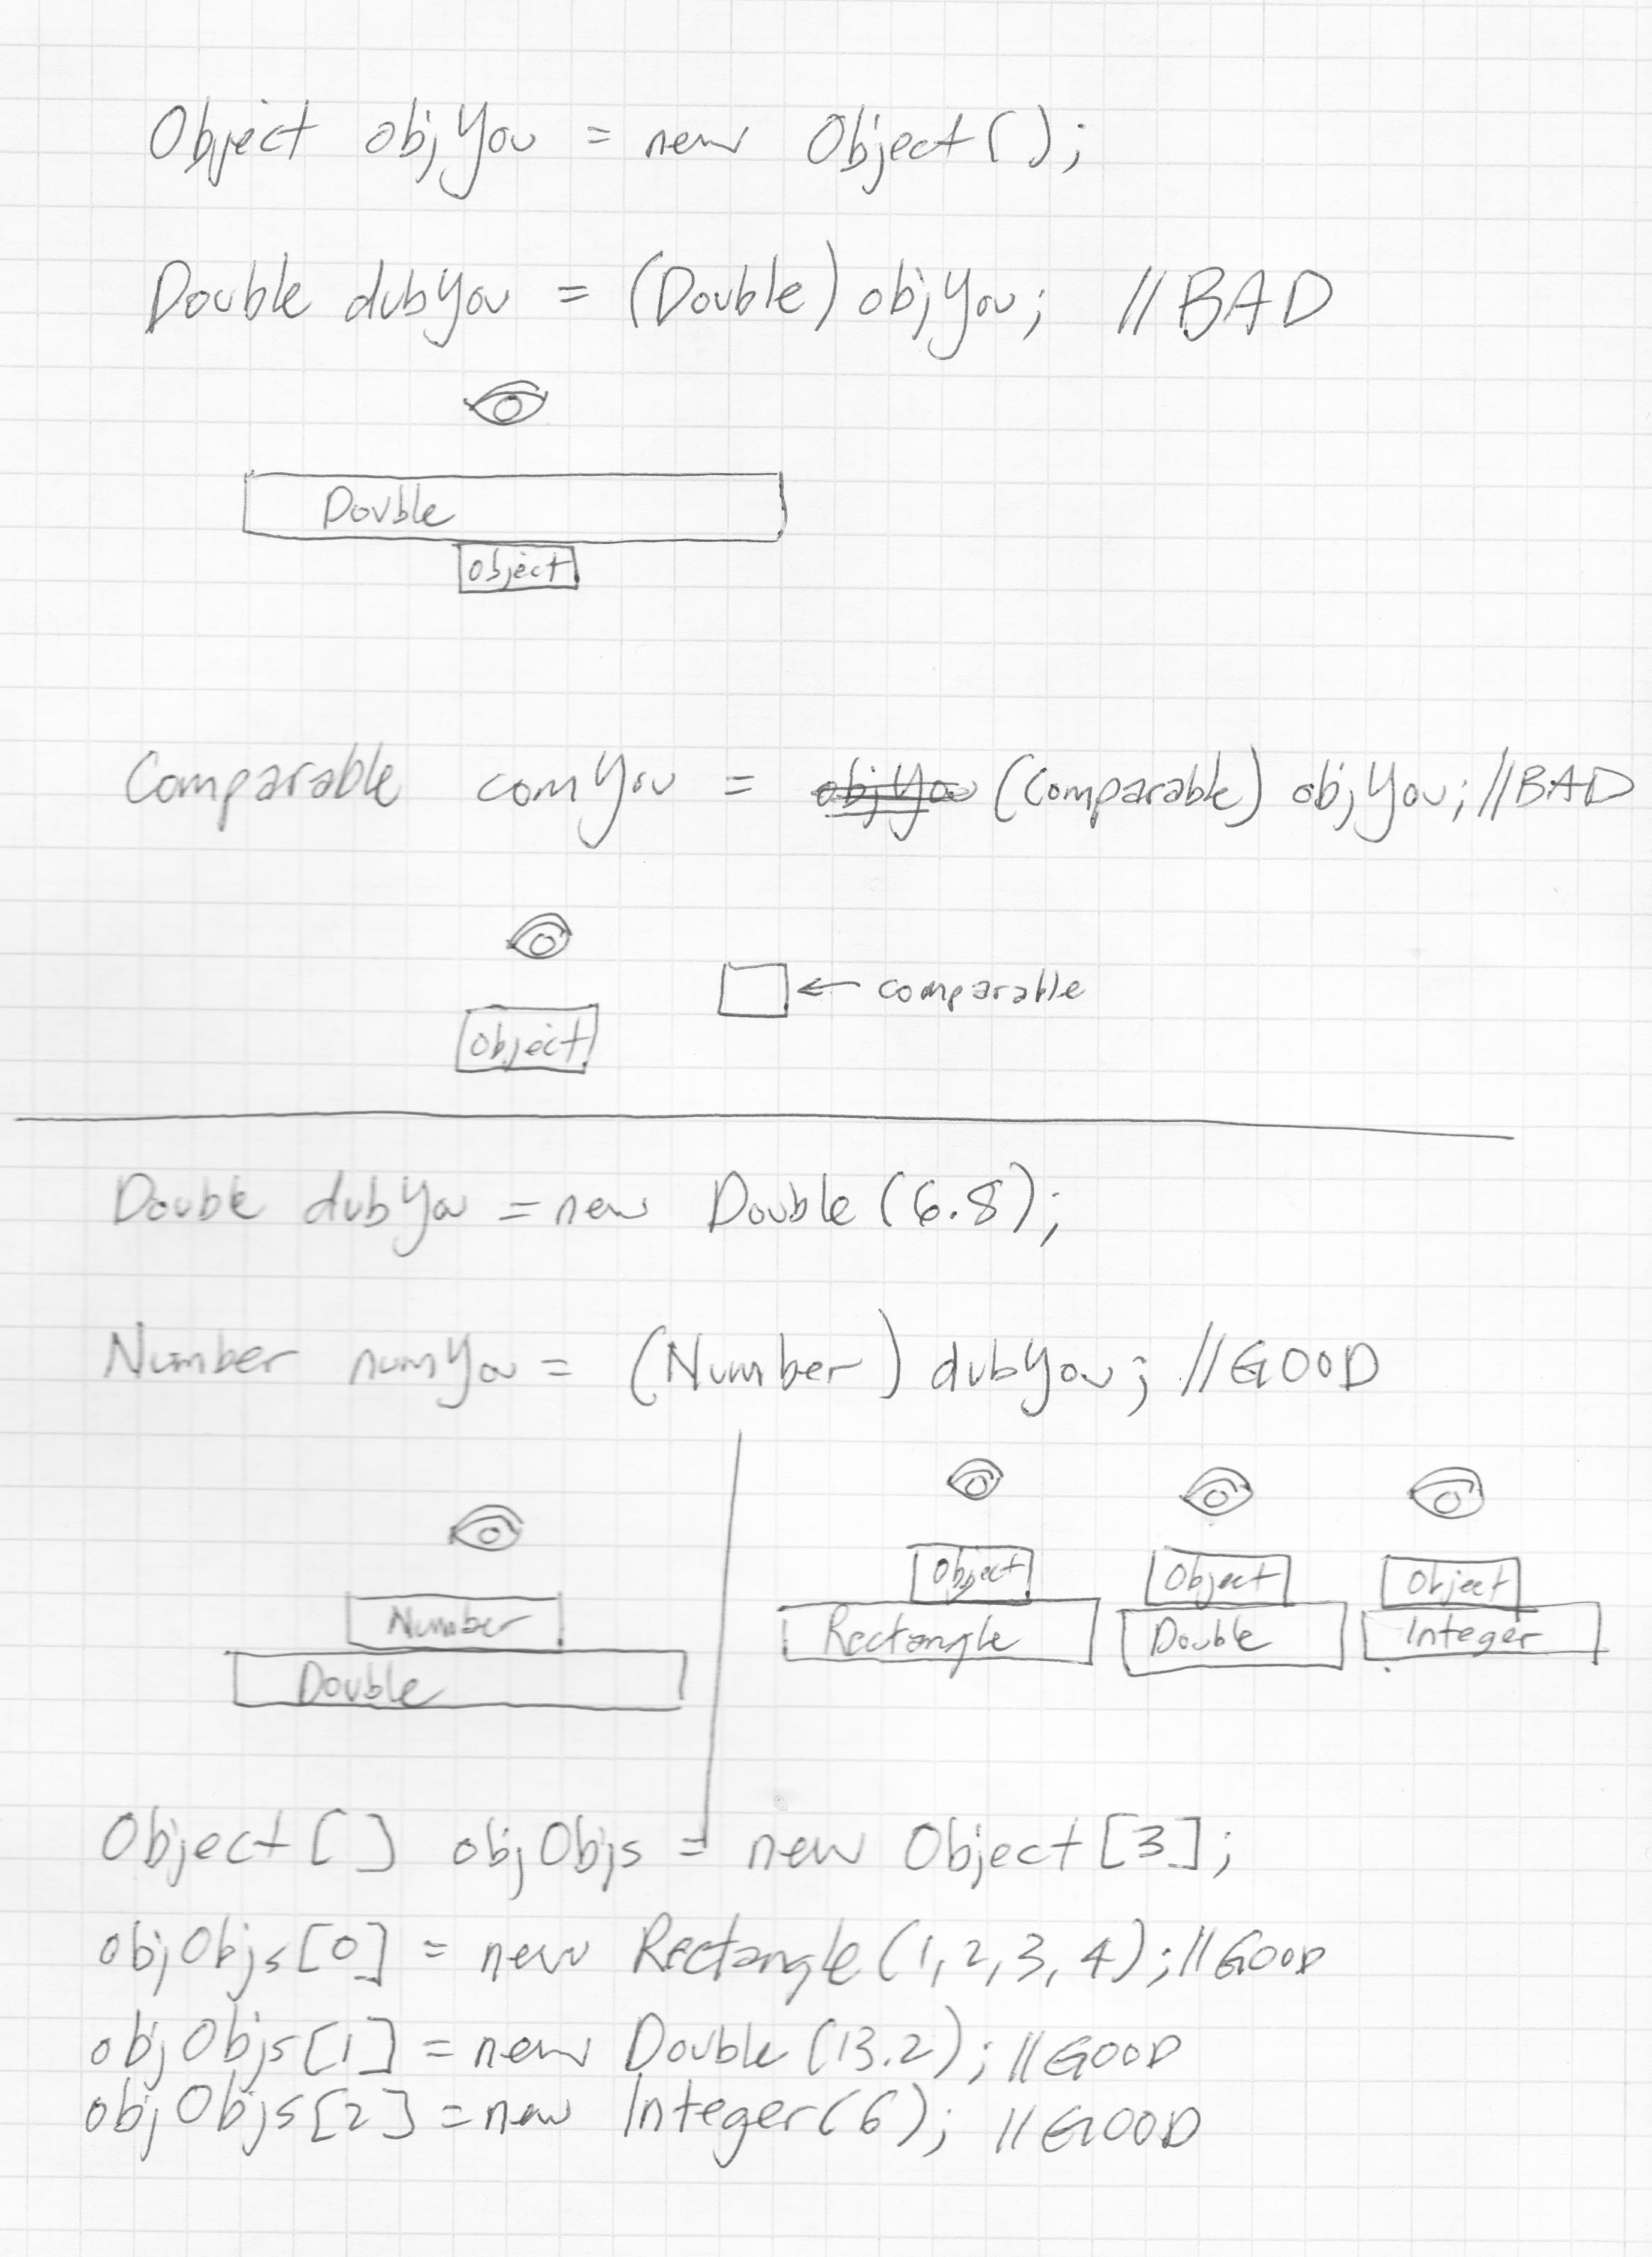 Object objYou = new Object();
Double dubYou = (Double) objYou; //BAD
Double
object
Comparable comYou = objYou (Comparable) objYou; //BAD
comparable
Object
Double dubYou = new Double(6.8);
Number numYou = (Number) dubYou; //GOOD
Object Object Object
Number
Rectangle Double Integer
Double
Object[] objObjs = new Object[3];
objObjs[0] = new Rectangle(1,2,3,4); //GOOD
objObjs[1] = new Double(13.2); //GOOD
objObjs[2] = new Integer(6); //GOOD